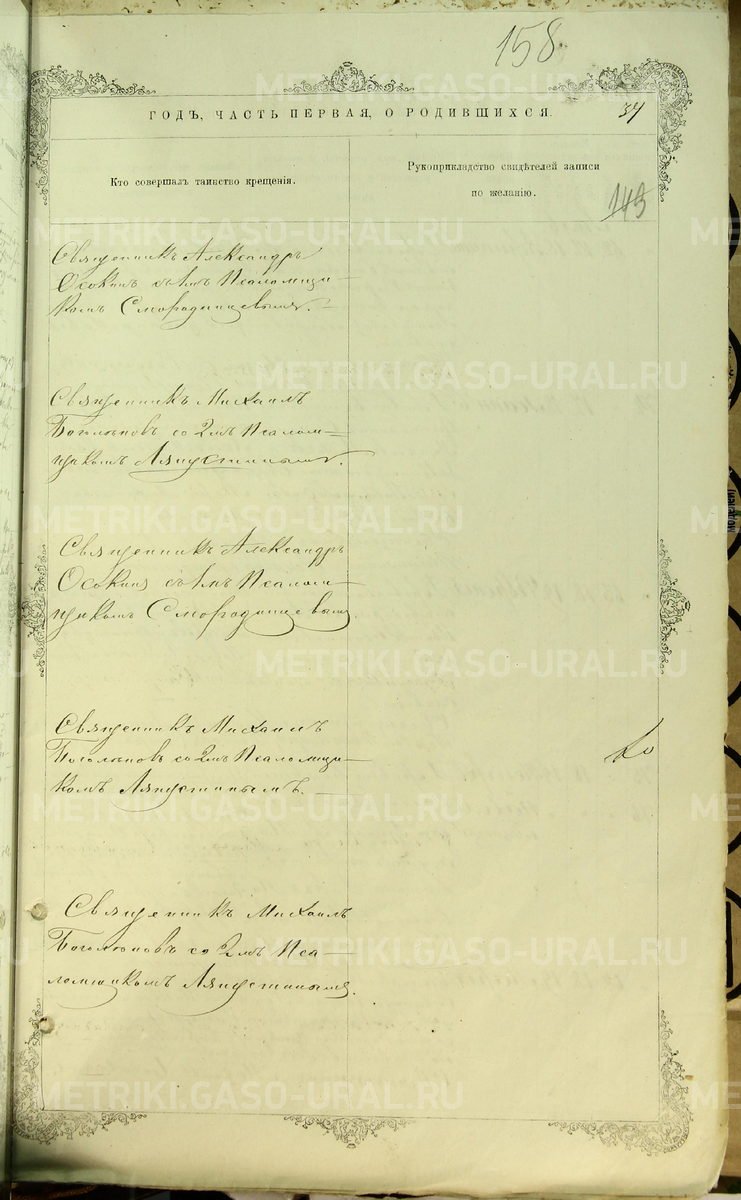 158.
ГОДЪ, ЧАСТЬ ПЕРВАЯ, О РОДИВШИХСЯ. 34
Кто совершалъ таинство крещенія.
Рукоприкладство свидѣтелей записи
по желанію.
143
Священникъ Александръ
Осокинъ съ 1мъ Псаломщи-
комъ Смородинцевымъ.
Священникъ Михаилъ
Боголюповъ со 2мъ Псалом-
щикомъ Ляпустинымъ.
Священникъ Александръ
Осокинъ съ 1мъ Псалом-
щикомъ Смородинцевымъ.
Священникъ Михаилъ
Боголюповъ со 2мъ Псаломщи-
комъ Ляпустинымъ.
Священникъ Михаилъ
Боголюповъ со 2мъ Пса-
ломщикомъ Ляпустинымъ.
METRIKI.GASO-URAL.RU